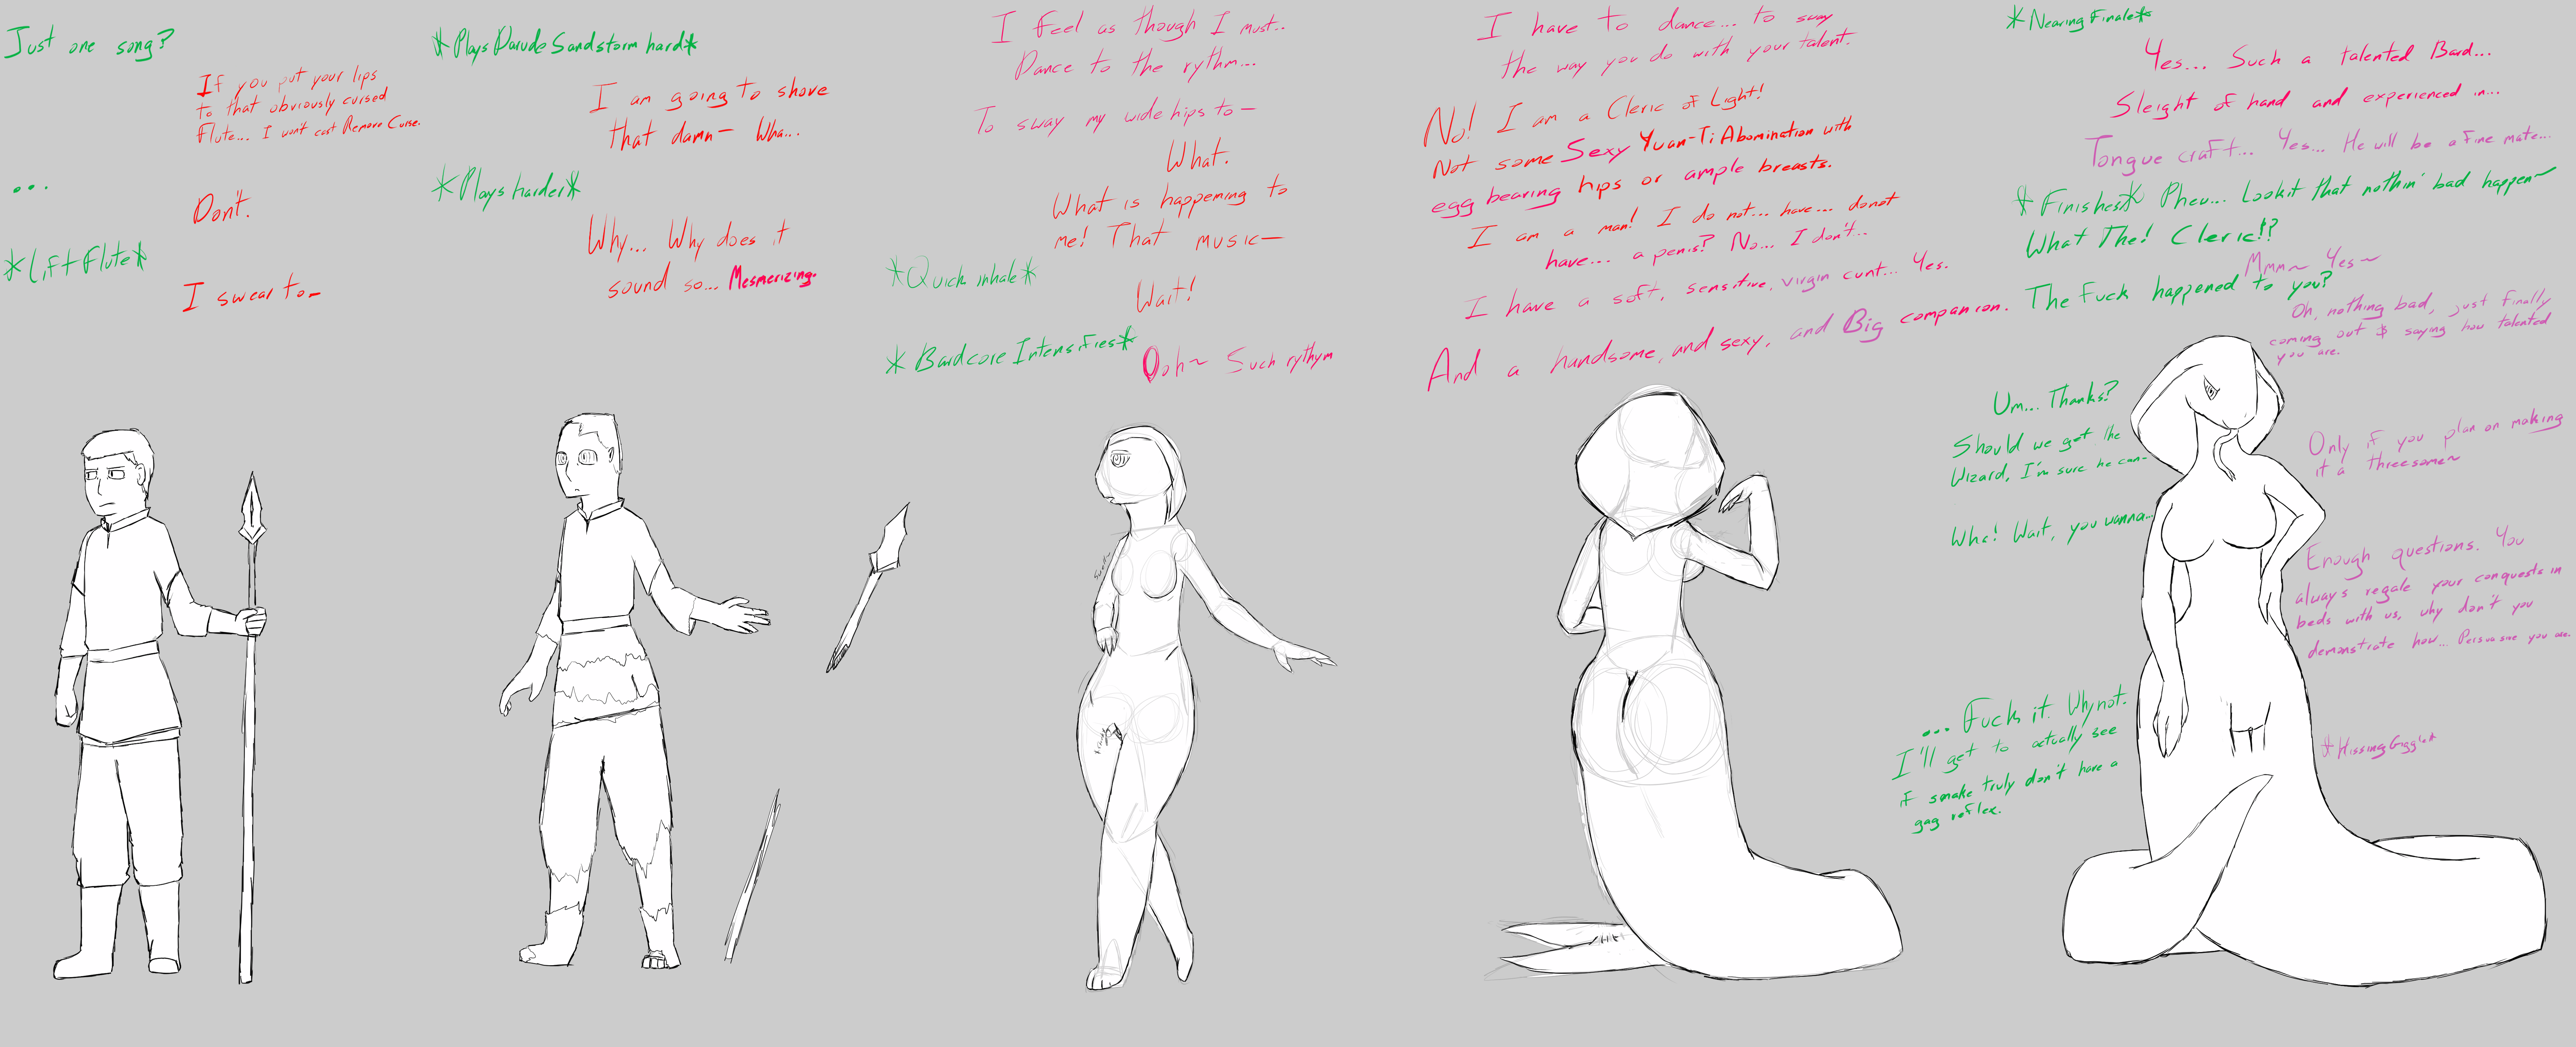 Just one song?
If you put your lips
to that obviously cursed
Flute... I won't cast Remove Curse.
...
Don't.
*Lift Flute*
I swear to-
*Plays Darude Sandstorm hard*
I am going to shove
that damn- Wha...
*Plays harder*
Why... Why does it
sound so... Mesmerizing.
I feel as though I must..
Dance to the rythm...
To sway my wide hips to-
What.
What is happening to
me! That music-
*Quick inhale*
Wait!
*Bardcore Intensifies*
Ooh~ Such rythym
I have to dance... to sway
the way you do with your talent.
No! I am a Cleric of Light!
Not some Sexy Yuan-Ti Abomination with
egg bearing hips or ample breasts.
I am a man! I do not... have... do not
have... a penis? No... I don't...
I have a soft, sensitive, virgin cunt... Yes.
And a handsome, and sexy, and Big companion.
*Nearing Finale*
Yes... Such a talented Bard...
Sleight of hand and experienced in...
Tongue craft... Yes... He will be a fine mate...
*Finishes* Pheu... Lookit that nothin' bad happen~
What The! Cleric!?
Mmm~ Yes~
The Fuck happened to you?
Oh, nothing bad, just finally
coming out & saying how talented
you are.
Um... Thanks?
Should we get the
Wizard, I'm sure he can-
Only if you plan on making
it a threesome~
Wha! Wait, you wanna...
Enough questions. You
always regale your conquests in
beds with us, why don't you
demonstrate how... Persuasive you are.
... Fuck it. Why not.
I'll get to actually see
if snake truly don't have a
gag reflex.
*Hissing Giggle*